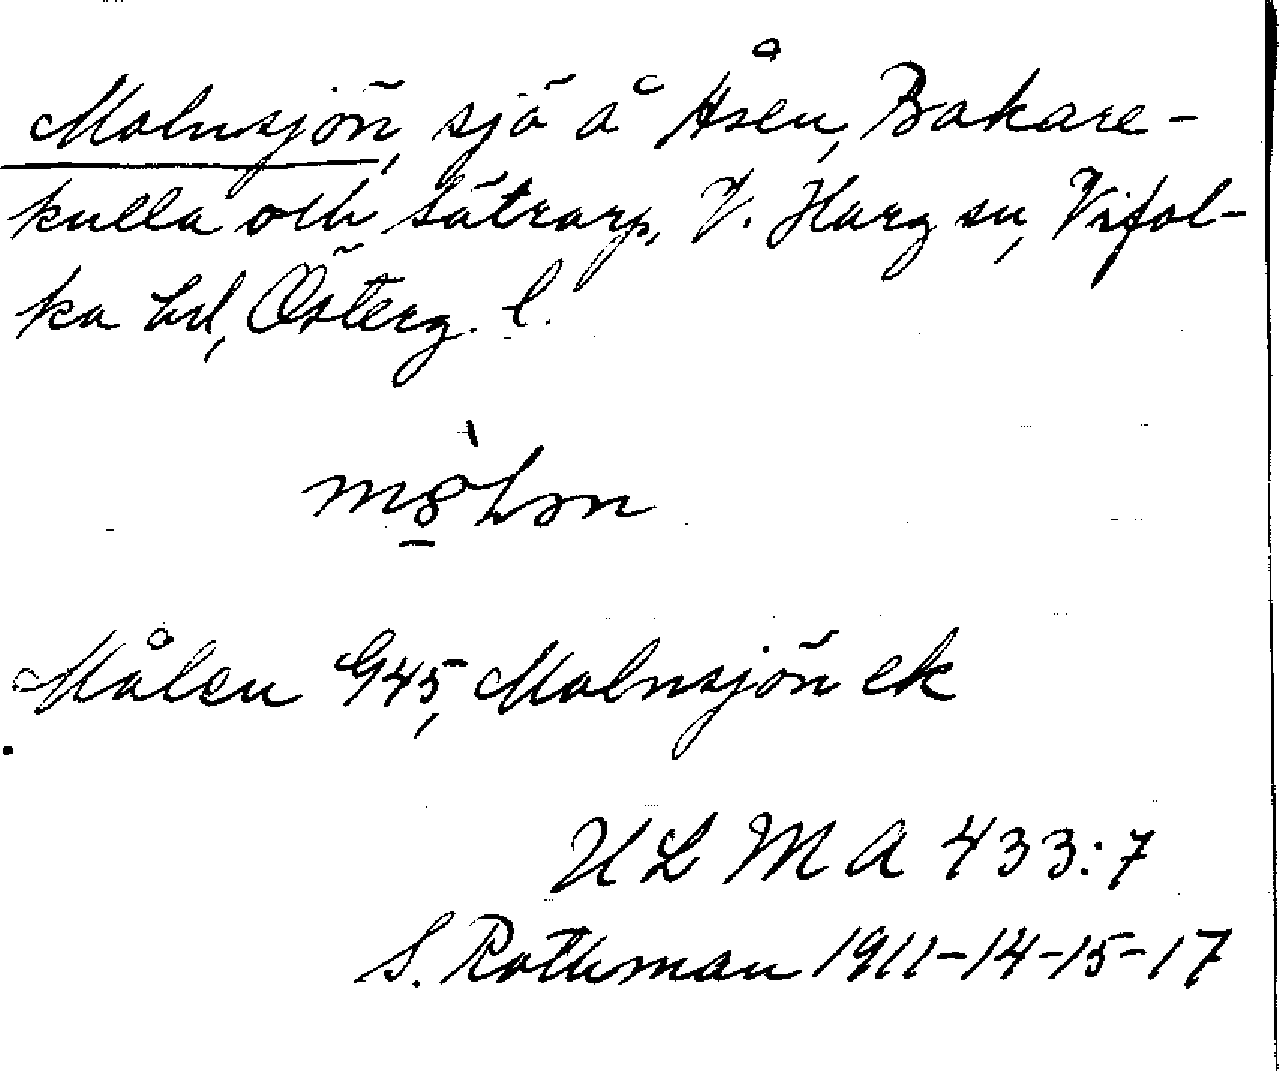 Molnsjön, sjö å Åsen, Bakare-
kulla och Sätrarp, V. Harg sn, Vifol-
ka hd, Österg. l.
Målen G45, Molnsjön ek
ULMA 433:7
S. Rothman 1911-14-15-17